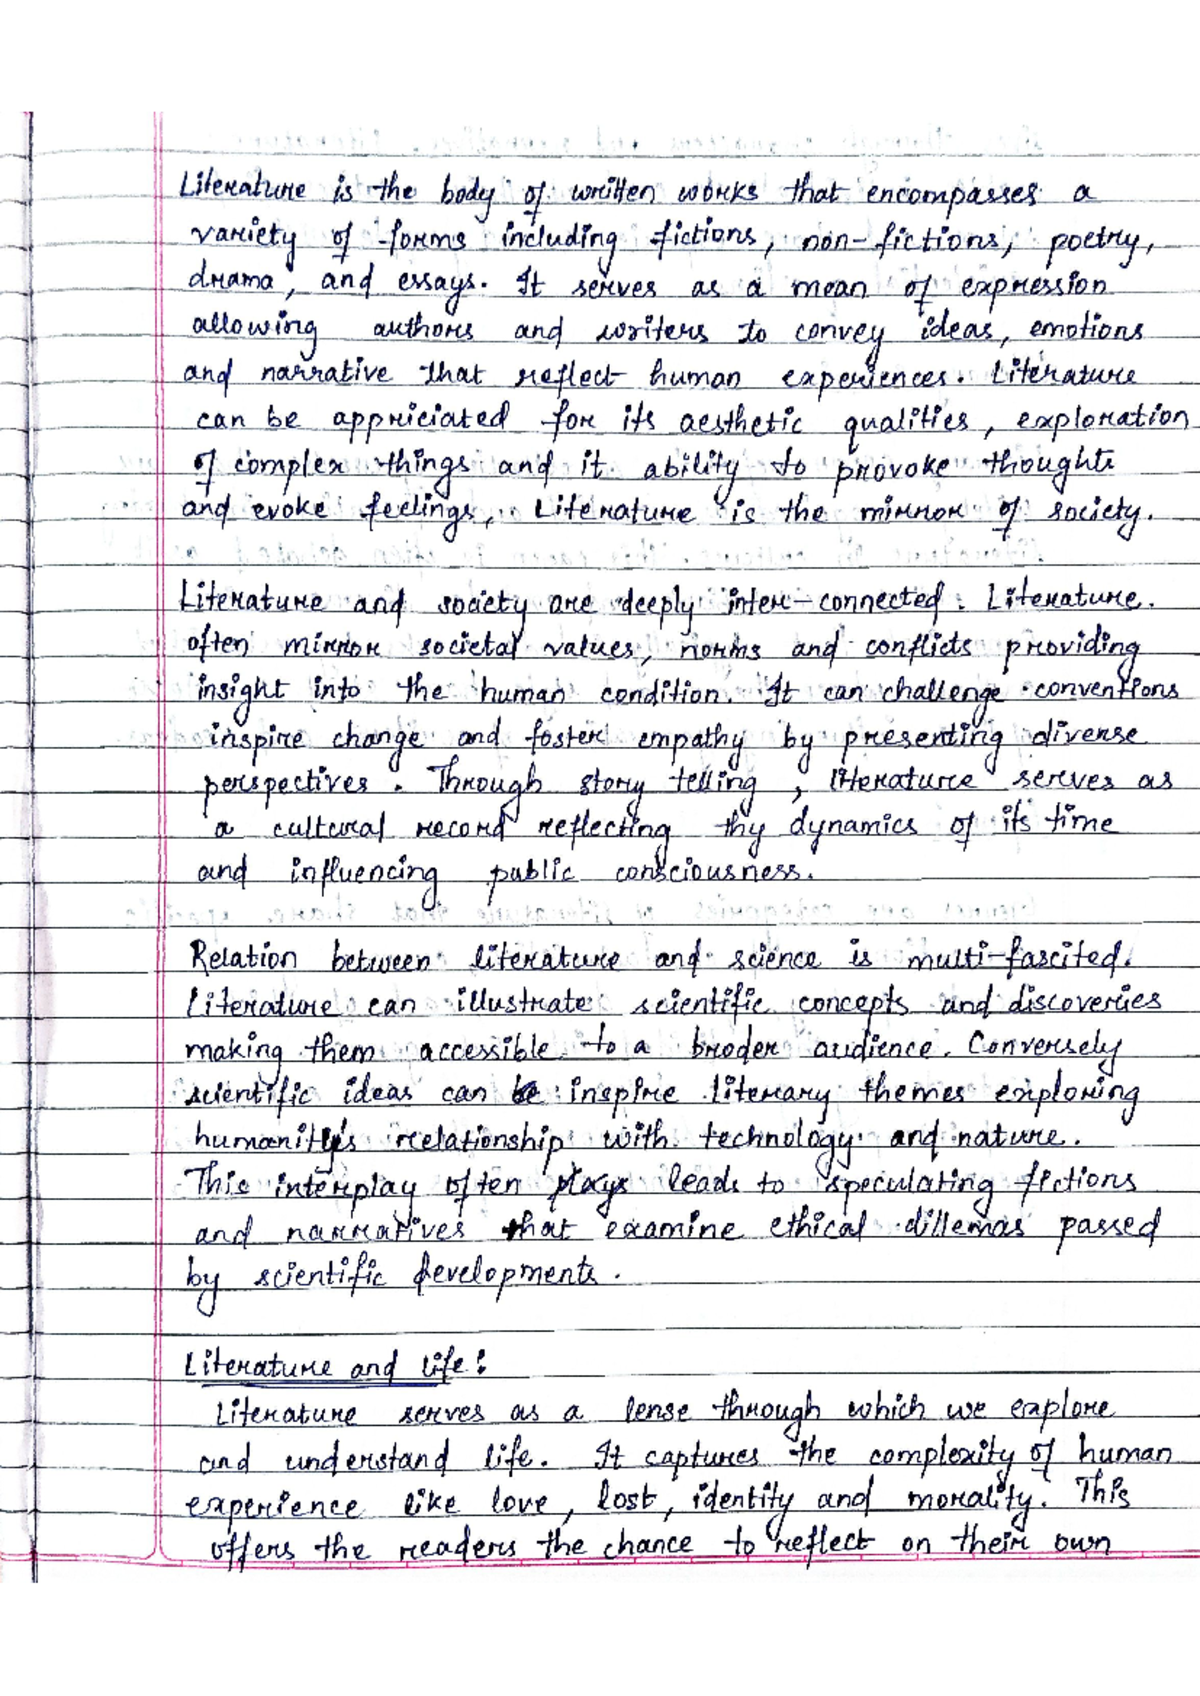 Literature is the body of written works that encompasses a
variety of forms including fictions, non-fictions, poetry,
drama, and essays. It serves as a mean of expression
allowing authors and writers to convey ideas, emotions
and narrative that reflect human experiences. Literature
can be appriciated for its aesthetic qualities, exploration
of complex things and it ability to provoke thoughts
and evoke feelings, Literature is the mirror of society.
Literature and society are deeply inter-connected. Literature
often mirror societal values, norms and conflicts providing
insight into the human condition. It can challenge conventions
inspire change and foster empathy by presenting diverse
perspectives. Through story telling, literature serves as
a cultural record reflecting thy dynamics of its time
and influencing public consciousness.
Relation between literature and science is multi-fascited.
Literature can illustrate scientific concepts and discoveries
making them accessible to a broder audience. Conversely
scientific ideas can be inspire literary themes exploring
humanity's relationship with technology and nature.
This interplay often plays leads to speculating fictions
and narratives that examine ethical dillemas passed
by scientific developments.
Literature and life:
Literature serves as a lense through which we explore
and understand life. It captures the complexity of human
experience like love, lost, identity and morality. This
offers the readers the chance to reflect on their own